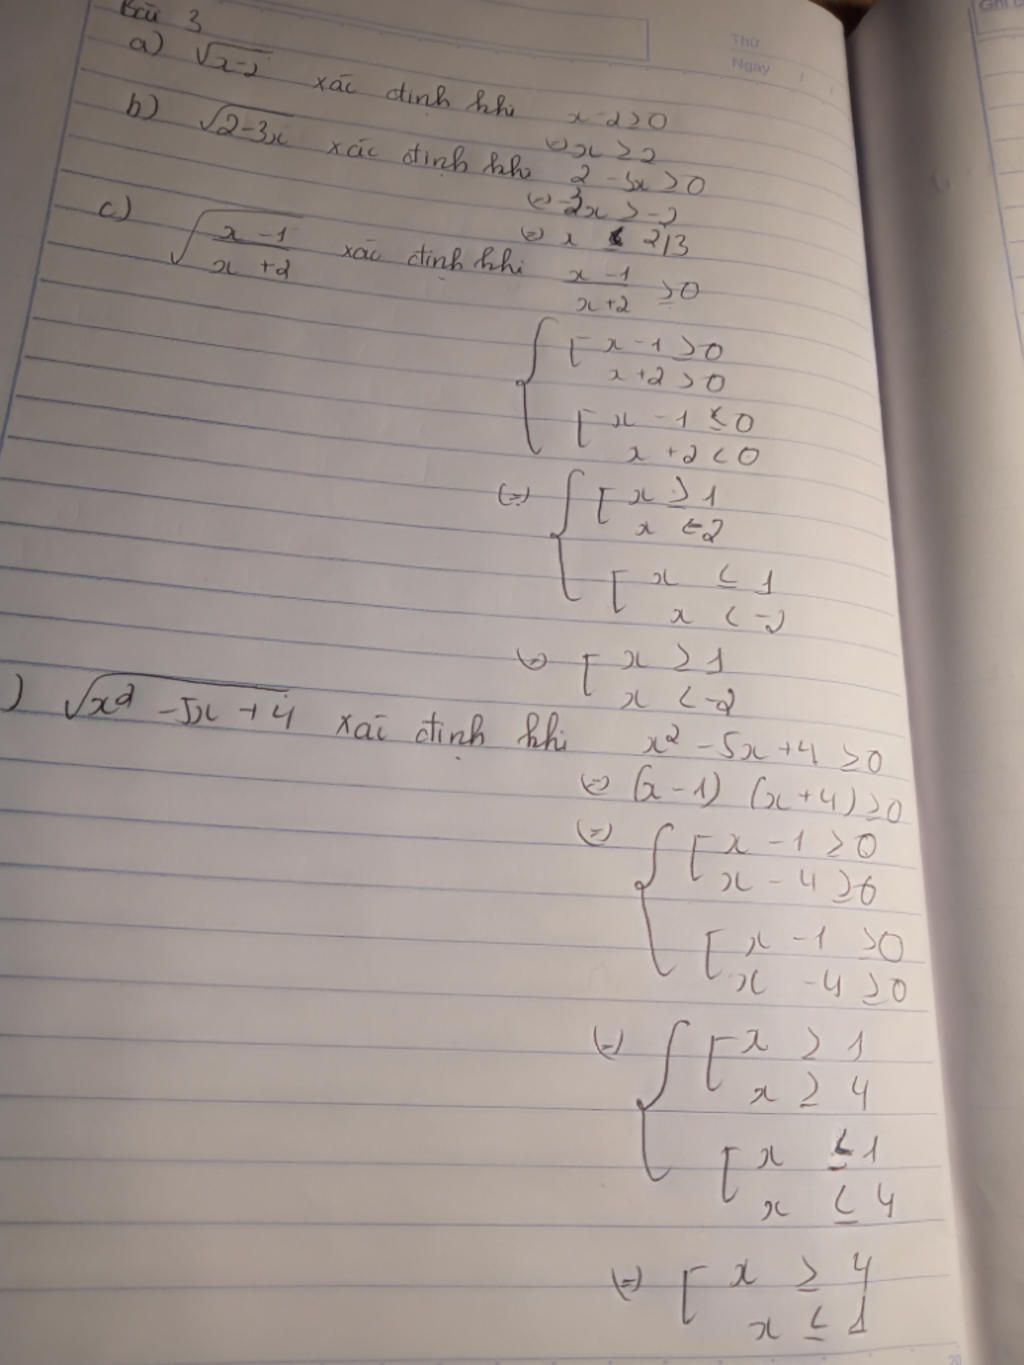 Bài 3
Thứ
Ngày
a) √(x-2) xác định khi x-2≥0
(=) x ≥ 2
b) √(2-3x) xác định khi 2-3x ≥0
(=) -3x ≥ -2
(=) x ≤ 2/3
c) √((x-1)/(x+2)) xác định khi (x-1)/(x+2) ≥0
{ [ x-1 ≥0
x+2 >0
[ x-1 ≤0
x+2 <0
(=) { [ x ≥ 1
x <-2
[ x ≤ 1
x < -2
(=) [ x ≥ 1
x < -2
) √(x²-5x+4) xác định khi x²-5x+4 ≥0
(=) (x-1) (x+4) ≥0
(=) { [ x-1 ≥0
x-4 ≥0
[ x-1 ≥0
x-4 ≥0
(=) { [ x ≥ 1
x ≥ 4
[ x ≤ 1
x ≤ 4
(=) [ x ≥ 4
x ≤ 1